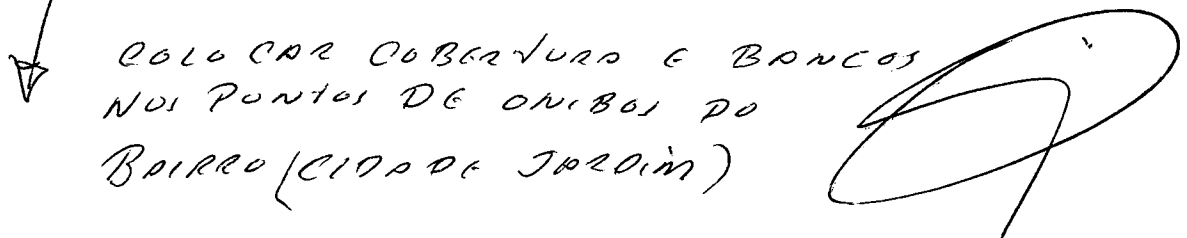 COLOCAR COBERTURA E BANCOS
NOS PONTOS DE ONIBOS DO
BAIRRO (CIDADE JARDIM)